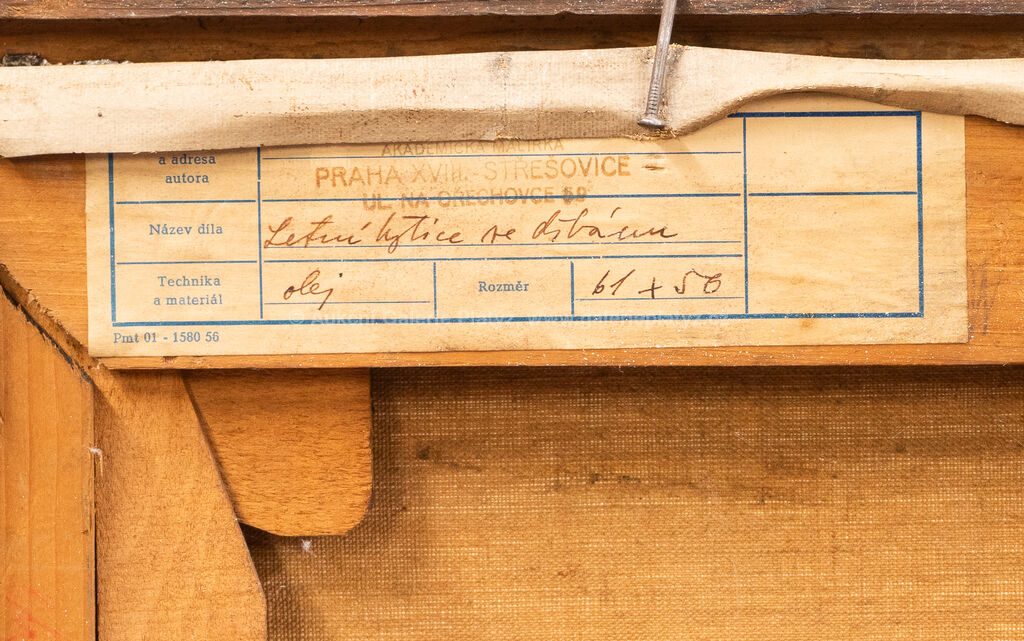 AKADEMICKÁ MALÍŘKA
a adresa
autora
PRAHA XVIII. - STŘEŠOVICE
UL. NA OŘECHOVCE 59
Název díla
Letní kytice ve džbánu
Technika
a materiál
olej
Rozměr
61 x 50
Pmt 01 - 1580 56